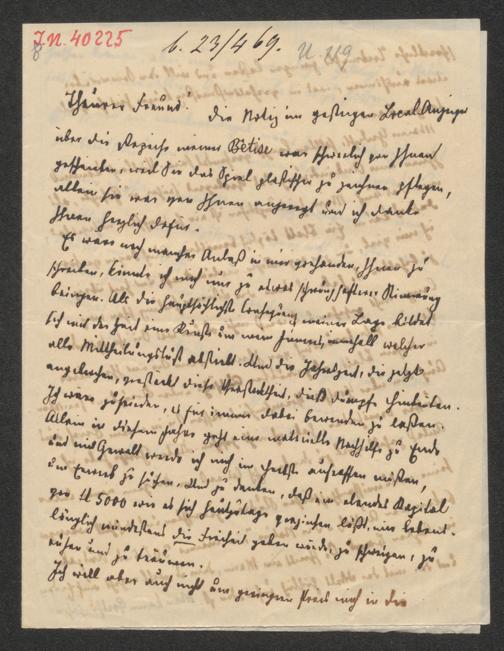 I.N. 40225
b. 23/4 69.
Theurer Freund! Die Notiz im gestrigen Local-Anzeiger
über die Reprise meiner Bêtise war schwerlich von Ihnen
geschrieben, weil Sie das Spiel plastischer zu zeichnen pflegen,
allein sie war von Ihnen angeregt und ich danke
Ihnen herzlich dafür.
Es wäre noch mancher Anlaß in mir vorhanden, Ihnen zu
schreiben, könnte ich mich nur zu etwas Stimmung
bringen. Als die meiner Lage bildet
sich mit der Zeit eine Kruste um mein Inneres, innerhalb welcher
alle Mittheilungslust abstirbt. Und die Jahreszeit, die jetzt
angebrochen, verstärkt diese, dieß dumpfe Hinbrüten.
Ich wäre zufrieden, es für immer dabei bewenden zu lassen.
Allein in diesem Jahre geht eine materielle Nachhilfe zu Ende
und mit Gewalt werde ich mich im Herbste aufraffen müssen,
um Erwerb zu suchen. Und zu denken, daß ein elendes Kapital
von fl 5000 wie es sich heutzutage verzinsen läßt, mir lebens-
länglich mindestens die Freiheit geben würde, zu schweigen, zu
ruhen und zu träumen.
Ich will aber auch nicht um geringern Preis mich in die